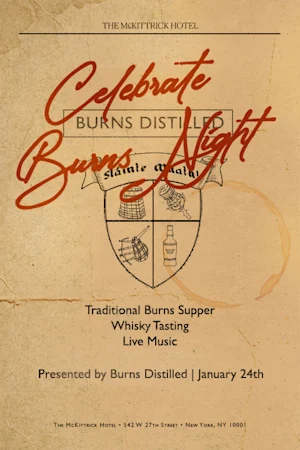 THE McKITTRICK HOTEL
Celebrate
BURNS DISTILLED
Burns Night
Slainte Mhath!
Traditional Burns Supper
Whisky Tasting
Live Music
Presented by Burns Distilled | January 24th
THE MCKITTRICK HOTEL • 542 W 27TH STREET • NEW YORK, NY 10001